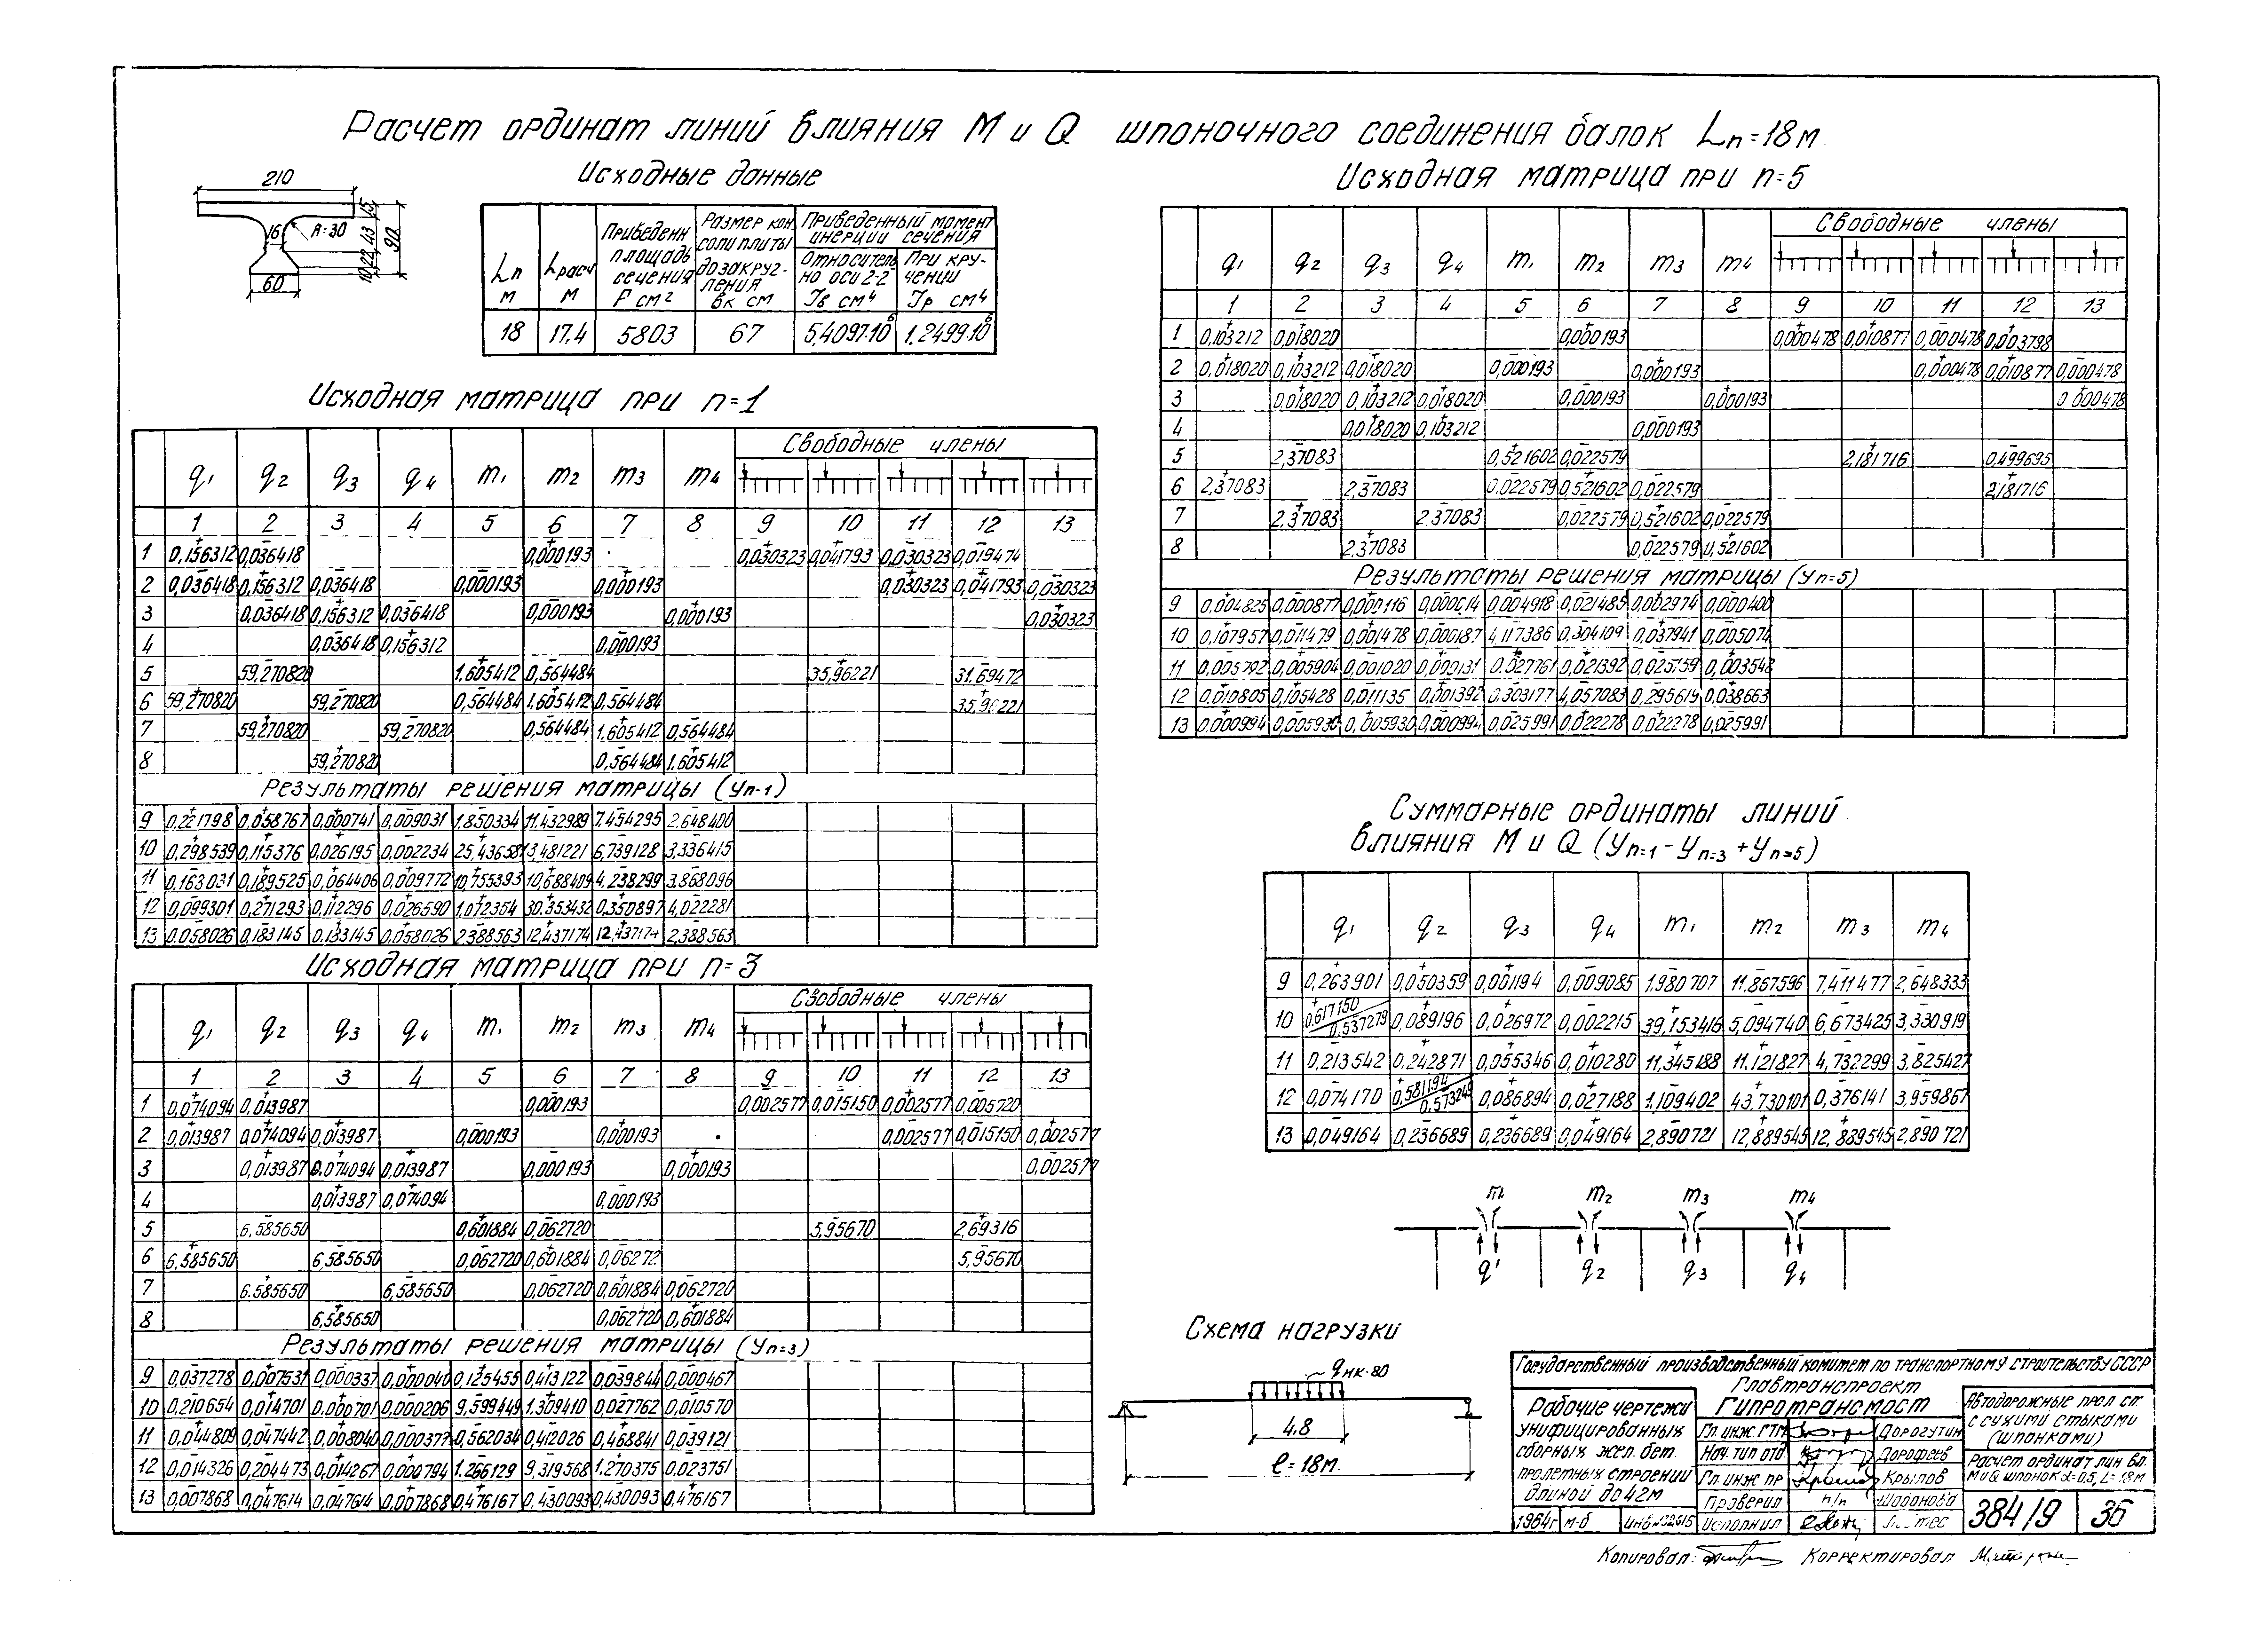 Расчет ординат линий влияния М и Q шпоночного соединения балок Lп=18м
Исходные данные
210
16
R=30
15
43
22
10
90
60
Lп м
Lрасч м
Приведенн площадь сечения F см²
Размер консоли плиты до закругления вк см
Приведенный момент инерции сечения
Относительно оси 2-2 Jв см⁴
При кручении Jр см⁴
18 17,4 5803 67 5,4097·10⁶ 1,2499·10⁶
Исходная матрица при n=1
q1 q2 q3 q4 m1 m2 m3 m4 Свободные члены
1 2 3 4 5 6 7 8 9 10 11 12 13
1 0,156312 0,036418 0,000193 0,030323 0,041793 0,030323 0,019474
2 0,036418 0,156312 0,036418 0,000193 0,000193 0,030323 0,041793 0,030323
3 0,036418 0,156312 0,036418 0,000193 0,000193 0,030323
4 0,036418 0,156312 0,000193
5 59,270820 1,605412 0,564484 35,96221 31,69472
6 59,270820 59,270820 0,564484 1,605412 0,564484 35,96221
7 59,270820 59,270820 0,564484 1,605412 0,564484
8 59,270820 0,564484 1,605412
Результаты решения матрицы (Уп-1)
9 0,221798 0,058767 0,000741 0,009031 1,850334 11,432989 7,454295 2,648400
10 0,298539 0,115376 0,026195 0,002234 25,43658 3,481221 6,739128 3,336415
11 0,163031 0,189525 0,064406 0,009772 10,755393 10,688409 4,238299 3,868096
12 0,099301 0,271293 0,112296 0,026590 1,072354 30,353432 0,350897 4,022281
13 0,058026 0,183145 0,183145 0,058026 2,388563 12,437174 12,437174 2,388563
Исходная матрица при n=3
q1 q2 q3 q4 m1 m2 m3 m4 Свободные члены
1 2 3 4 5 6 7 8 9 10 11 12 13
1 0,074094 0,013987 0,000193 0,002577 0,015150 0,002577 0,005720
2 0,013987 0,074094 0,013987 0,000193 0,000193 0,002577 0,015150 0,002577
3 0,013987 0,074094 0,013987 0,000193 0,000193 0,002577
4 0,013987 0,074094 0,000193
5 6,585650 0,601884 0,062720 5,95670 2,69316
6 6,585650 6,585650 0,062720 0,601884 0,06272 5,95670
7 6.585650 6,585650 0,062720 0,601884 0,062720
8 6,585650 0,062720 0,601884
Результаты решения матрицы (Уп=3)
9 0,037278 0,007531 0,000337 0,000040 0,125455 0,413122 0,039844 0,000467
10 0,210654 0,014701 0,000701 0,000206 9,599449 1,309410 0,027762 0,010570
11 0,044809 0,047442 0,008040 0,000377 0,562034 0,412026 0,468841 0,039121
12 0,014326 0,204473 0,014267 0,000794 1.266129 9,319568 1,270375 0,023751
13 0,007868 0,047614 0,047614 0,007868 0,476167 0,430093 0,430093 0,476167
Исходная матрица при n=5
q1 q2 q3 q4 m1 m2 m3 m4 Свободные члены
1 2 3 4 5 6 7 8 9 10 11 12 13
1 0,103212 0,018020 0,000193 0,000478 0,010877 0,000478 0,003798
2 0,018020 0,103212 0,018020 0,000193 0,000193 0,000478 0,010877 0,000478
3 0,018020 0,103212 0,018020 0,000193 0,000193 0,000478
4 0,018020 0,103212 0,000193
5 2,37083 0,521602 0,022579 2,181716 0,499695
6 2,37083 2,37083 0,022579 0,521602 0,022579 2,181716
7 2,37083 2,37083 0,022579 0,521602 0,022579
8 2,37083 0,022579 0,521602
Результаты решения матрицы (Уп=5)
9 0,004825 0,000877 0,000116 0,000014 0,004918 0,021485 0,002974 0,000400
10 0,107957 0,011479 0,001478 0,000187 4,117386 0,304109 0,037941 0,005074
11 0,005792 0,005904 0,001020 0,000131 0,027761 0,021392 0,025159 0,003548
12 0,010805 0,105428 0,011135 0,001392 0,303177 4,057083 0,295619 0,038663
13 0,000994 0,005930 0,005930 0,000994 0,025991 0,022278 0,022278 0,025991
Суммарные ординаты линий
влияния М и Q (Уп=1 - Уп=3 + Уп=5)
q1 q2 q3 q4 m1 m2 m3 m4
9 0,263901 0,050359 0,001194 0,009085 1,980707 11,867596 7,411477 2,648333
10 0,617150 / 0,537279 0,089196 0,026972 0,002215 39,153416 5,094740 6,673425 3,330919
11 0,213542 0,242871 0,055346 0,010280 11,345188 11,121827 4,732299 3,825427
12 0,074170 0,581194 / 0,573249 0,086894 0,027188 1,109402 43,730101 0,376141 3,959867
13 0,049164 0,236689 0,236689 0,049164 2,890721 12,889545 12,889545 2,890721
m1 m2 m3 m4
q1 q2 q3 q4
Схема нагрузки
qнк-80
4.8
ℓ=18м
Государственный производственный комитет по транспортному строительству СССР
Главтранспроект
Гипротрансмост
Рабочие чертежи унифицированных сборных жел. бет. пролетных строений длиной до 42м
Гл. инж. ГТМ Дорогутин
Нач. тип отд Дорофеев
Гл. инж. пр Крылов
Проверил п/п Шабанова
Исполнил
1964г м-б инв №
Автодорожные прол ст с сухими стыками (шпонками)
Расчет ординат лин вл. М и Q шпонок α=0,5, L=18м
384/9 36
Копировал: Корректировал